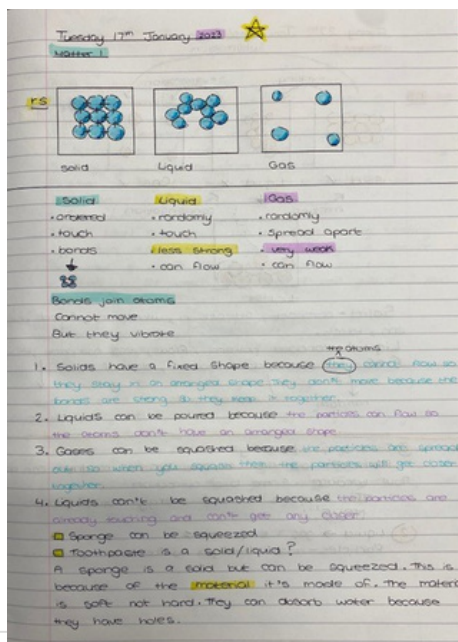 Tuesday 17th January 2023
Matter 1
rs
Solid Liquid Gas
Solid Liquid Gas
• ordered • randomly • randomly
• touch • touch • Spread apart
• bonds • less strong • very weak
• can flow • can flow
Bonds join atoms
Cannot move
But they vibrate
the atoms
1. Solids have a fixed shape because they cannot flow so
they stay in an arranged shape they don't move because the
bonds are strong so they keep it together.
2. Liquids can be poured because the particles can flow so
the atoms don't have an arranged shape.
3. Gases can be squashed because the particles are spread
out so when you squash them the particles will get closer
together.
4. Liquids can't be squashed because the particles are
already touching and can't get any closer
Sponge can be squeezed
Toothpaste is a solid/liquid?
A sponge is a solid but can be squeezed. This is
because of the material it's made of. The materi
is soft not hard. They can absorb water because
they have holes.